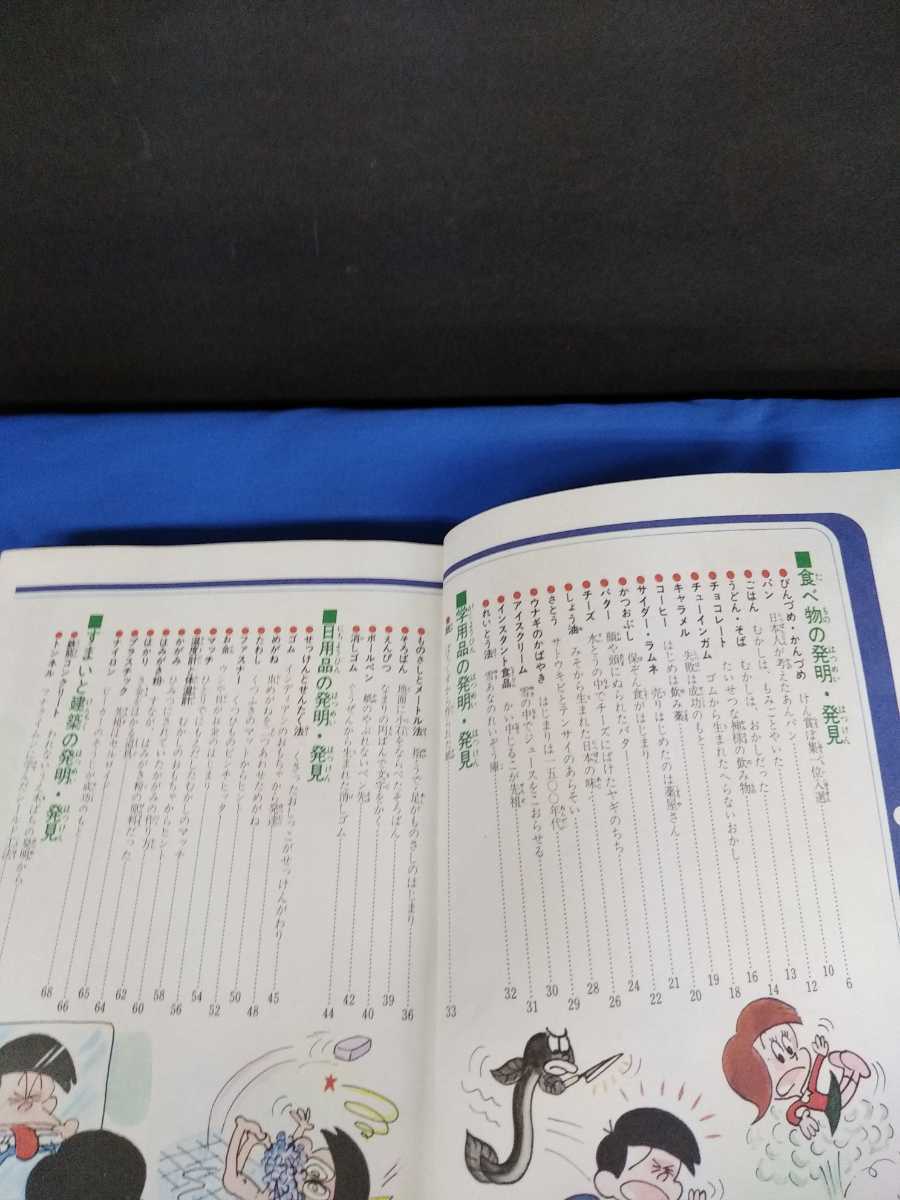 ■食べ物の発明・発見
●びんづめ・かんづめ けん賞に第一位入選 6
●パン 日本人が考えたあんパン 10
●ごはん むかしは、もみごとやいた 12
●うどん・そば むかしは、おかしだった 13
●チョコレート たいせつな神様の飲み物 14
●チューインガム ゴムから生まれたへらないおかし 16
●キャラメル 失敗は成功のもと 18
●コーヒー はじめは飲み薬 19
●サイダー・ラムネ 売りはじめたのは薬屋さん 20
●かつおぶし 保ぞん食がはじまり 21
●バター 顔や頭にぬられたバター 22
●チーズ 水とうの中でチーズにばけたヤギのちち 24
●しょう油 みそから生まれた日本の味 26
●さとう サトウキビとテンサイのあらそい 28
●ウナギのかばやき はじまりは一五〇〇年代 29
●アイスクリーム 雪の中でジュースをこおらせる 30
●インスタント食品 かい中じるこが先祖 31
●れいとう法 雪あなのれいぞう庫 32
■学用品の発明・発見
33
●ものさしとメートル法 指やうで・足がものさしのはじまり 36
●そろばん 地面に小石をならべたそろばん
●えんぴつ なまりの円ばんで文字をかく 39
●ボールペン 紙のやぶれないペン先 40
●消しゴム ぐうぜんから生まれた消しゴム 42
■日用品の発明・発見
●せっけんとせんたく法 くさったおしっこがせっけんがわり 44
●ゴム インディアンのおもちゃから発達 45
●めがね 東めがねを二つあわせためがね
●たわし くつふきのマットからヒント 48
●ファスナー くつひもがわりのファスナー 50
●かぎ 52
●マッチ ひとりでにもえだしたむかしのマッチ 54
●温度計と体温計 むかしのおもちゃからヒント 56
●かがみ ひみつにされたかがみの作り方 58
●はみがき粉 すなが、はみがき粉の原料だった 60
●はり 62
●プラスチック 先祖はセルロイド 64
●ナイロン ビーカーのそうじが成功のもと
■すまいと建築の発明・発見
●鉄筋コンクリート われないうえ木ばちの発明から 66
●トンネル 68